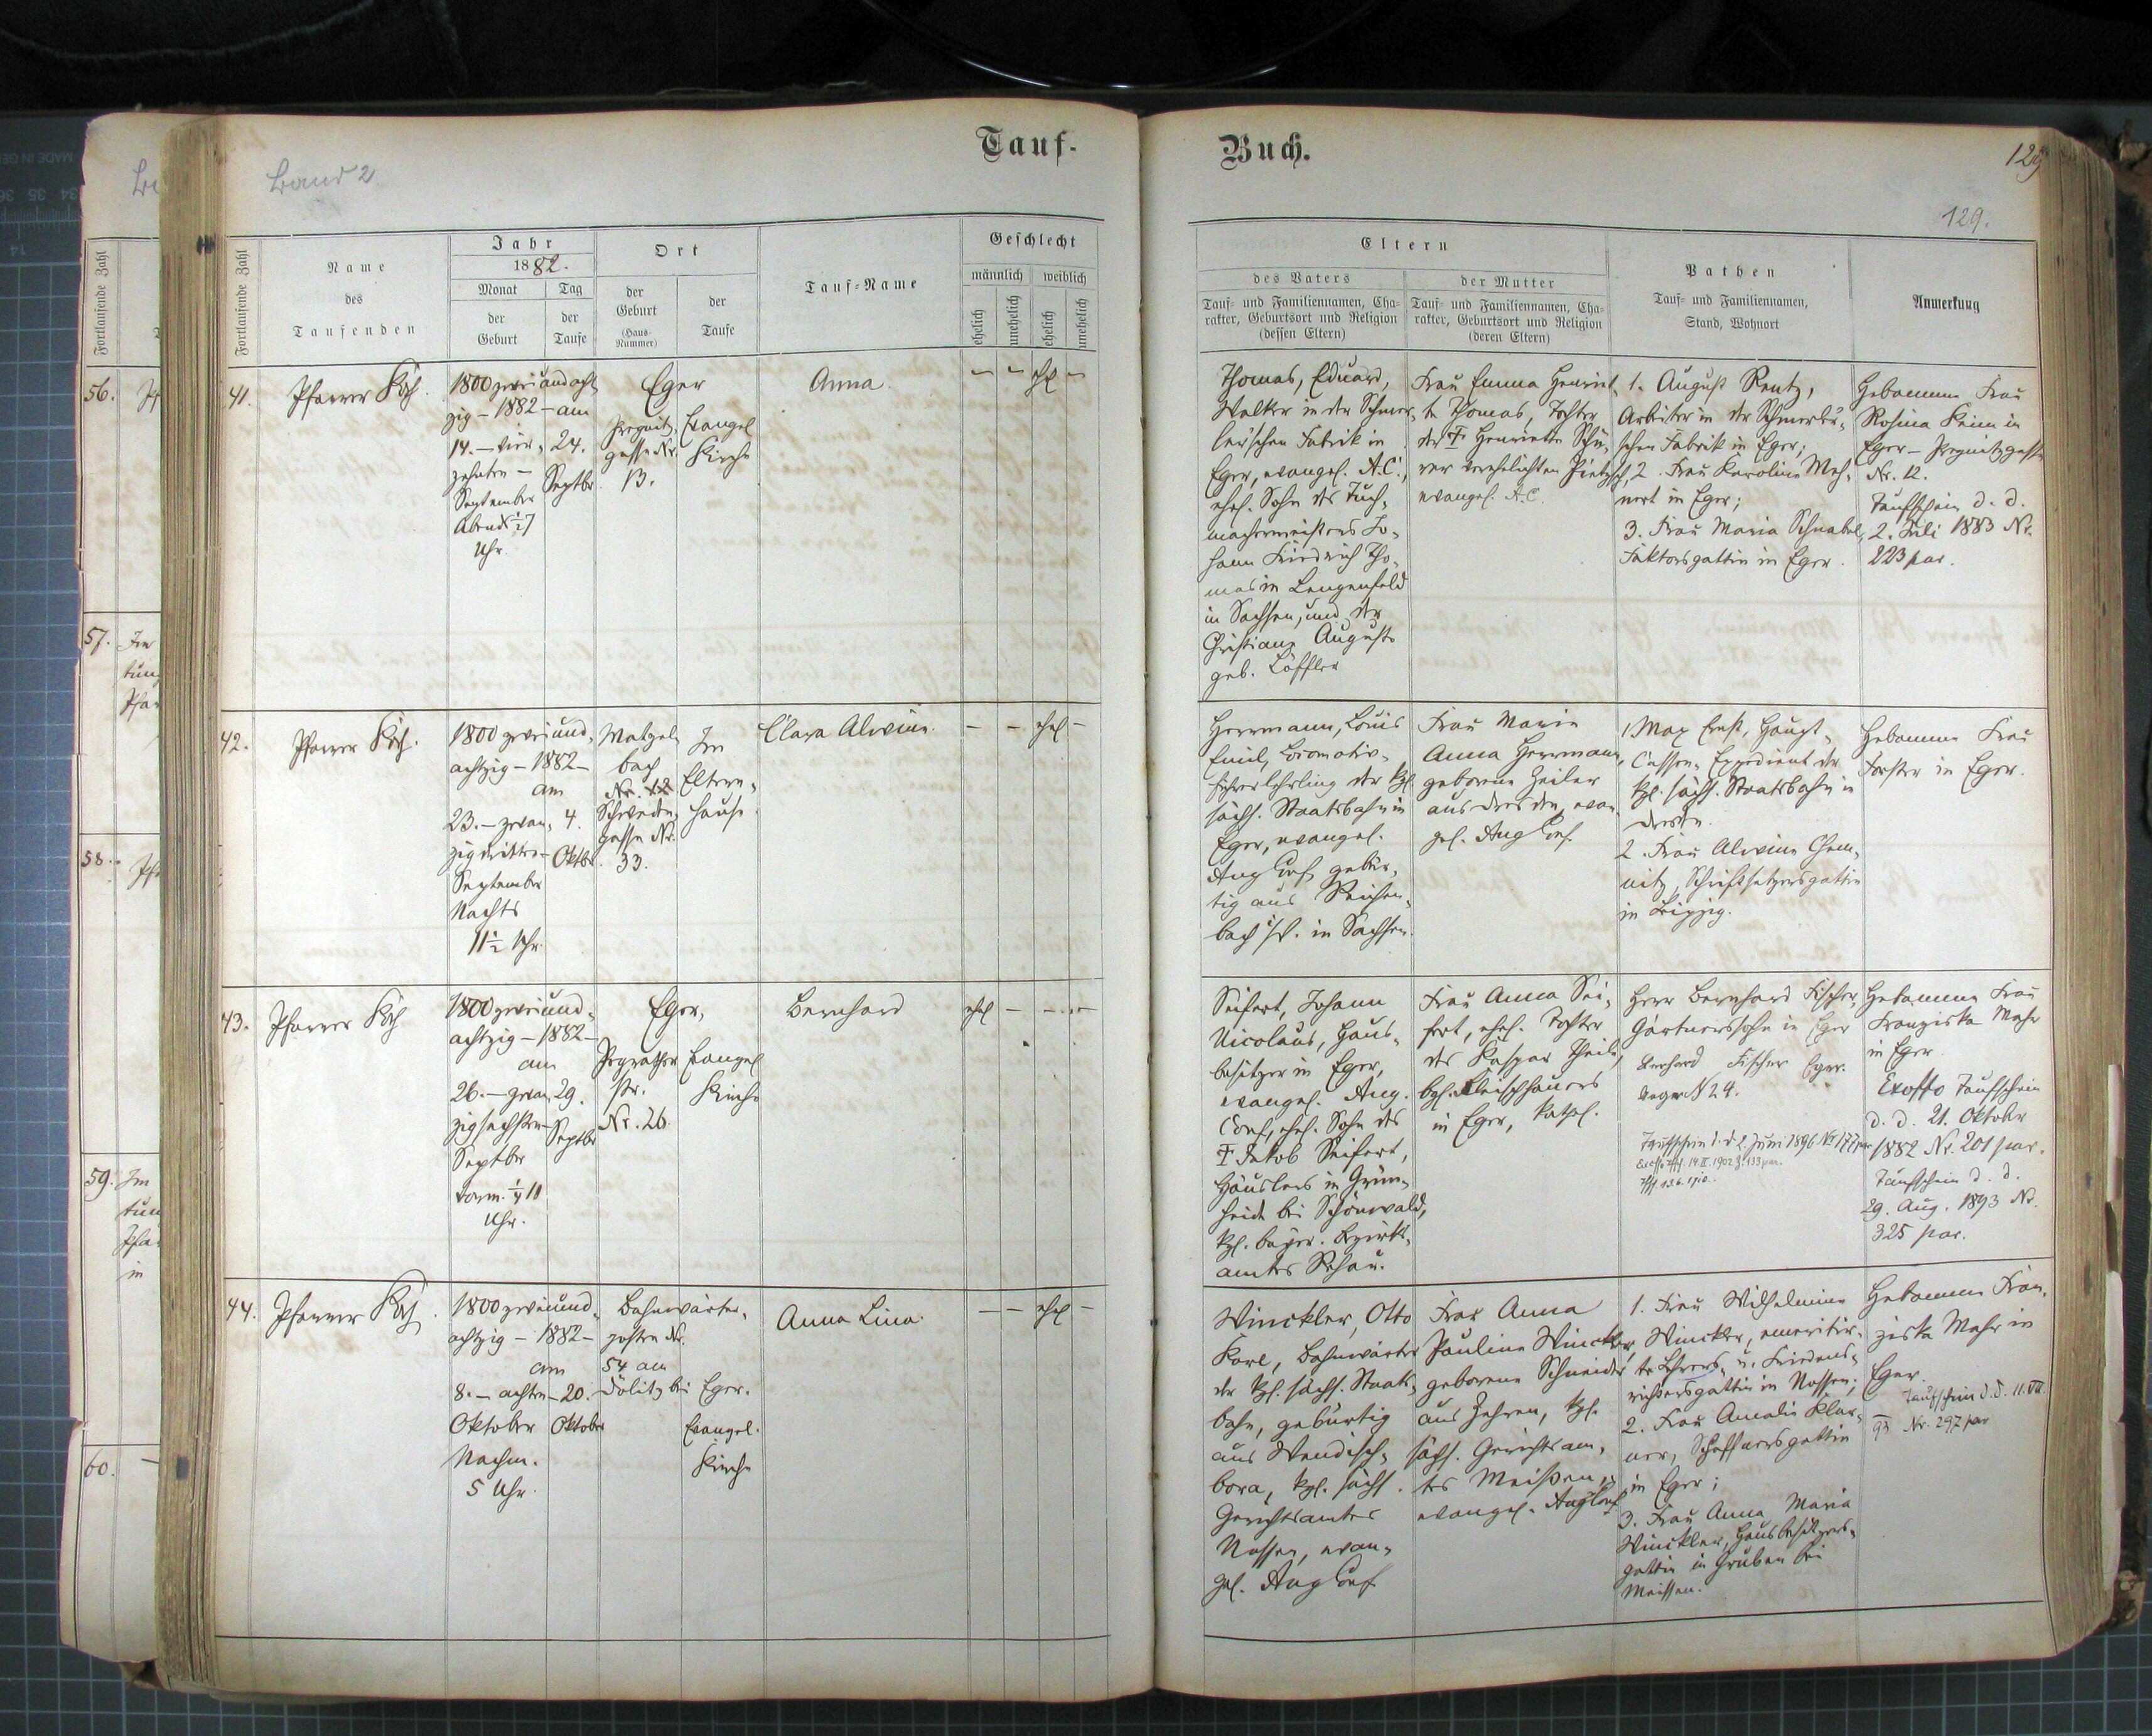 Tauf-
Buch.
Band 2
129
129.
Fortlaufende Zahl
Name
des
Taufenden
Jahr
1882.
Monat
der
Geburt
Tag
der
Taufe
Ort
der
Geburt
(Haus-
Nummer)
der
Taufe
Tauf-Name
Geschlecht
männlich
weiblich
ehelich
unehelich
ehelich
unehelich
Eltern
des Vaters
Tauf- und Familiennamen, Cha-
rakter, Geburtsort und Religion
(dessen Eltern)
der Mutter
Tauf- und Familiennamen, Cha-
rakter, Geburtsort und Religion
(deren Eltern)
Pathen
Tauf- und Familiennamen,
Stand, Wohnort
Anmerkung
41.
Pfarrer Koch.
1800 zweiundacht
zig – 1882 – am
14. – vier-
zehnten –
September
Abends ½7
Uhr.
24.
Septbr.
Eger
gasse Nr.
13.
Evangel
Kirche
Anna.
– – ehel –
Thomas, Eduard,
Walker in der Schmer-
ler'schen Fabrik in
Eger, evangel. A.C.,
ehel. Sohn des Tuch-
machermeisters Jo-
hann Friedrich Tho-
mas in Lengenfeld
in Sachsen, und der
Christiane Auguste
geb. Löffler
Frau Emma Henriet-
te Thomas, Tochter
der † Henriette
verehelichten
evangel. A.C.
1. August Rentz,
Arbeiter in der
schen Fabrik in Eger;
2. Frau Karoline Meh-
nert in Eger;
3. Frau Maria Schnabel,
Faktorsgattin in Eger.
Hebamme Frau
Rosina Keim in
Eger –
Nr. 12.
Taufschein d. d.
2. Juli 1883 Nr.
223 par.
42.
Pfarrer Koch.
1800 zweiund-
achtzig – 1882 –
am
23. – zwan-
zigdritten –
September
Nachts
11½ Uhr.
4.
Oktbr.
Matzel-
bach
Nr. 12
Schweden-
gasse Nr.
33.
Im
Eltern-
hause.
Clara Alwine.
– – ehel –
Herrmann, Louis
Emil, Locomotiv-
führerlehrling der kgl.
sächs. Staatsbahn in
Eger, evangel.
Aug Conf, gebür-
tig aus Reichen-
bach i/V. in Sachsen.
Frau Marie
Anna Herrmann,
geborene Zeiler
aus Dresden, evan-
gel. Aug Conf.
1. Max Ernst, Haupt-
Cassen-Expedient der
kgl. sächs. Staatsbahn in
Dresden.
2. Frau Alwine Chem-
nitz, Schriftsetzersgattin
in Leipzig.
Hebamme Frau
Forster in Eger.
43.
Pfarrer Koch
1800 zweiund-
achtzig – 1882 –
am
26. – zwan-
zigsechsten –
Septbr
Vorm. ¼11
Uhr.
29.
Septbr
Eger,
Pograther
str.
Nr. 26.
Evangel
Kirche
Bernhard
ehel – – –
Seifert, Johann
Nicolaus, Haus-
besitzer in Eger,
evangel. Aug.
Conf, ehel. Sohn des
† Jakob Seifert,
Häuslers in Grün-
heide bei Schönwald,
kgl. bayer. Bezirks-
amtes Rehau.
Frau Anna Sei-
fert, ehel. Tochter
des Kaspar
bgl. Fleischhauers
in Eger, kathol.
Herr Bernhard Fischer,
Gärtnerssohn in Eger
Bernhard Fischer Eger.
N 24.
Taufschein d. d. 2. Juni 1896 No 177 par
14.II.1902 Z. 133 par.
13.6.1910.
Hebamme Frau
Franziska Mahr
in Eger
Exoffo Taufschein
d. d. 21. Oktober
1882 Nr. 201 par.
Taufschein d. d.
29. Aug. 1893 Nr.
325 par.
44.
Pfarrer Koch.
1800 zweiund-
achtzig – 1882 –
am
8. – achten –
Oktober
Nachm.
5 Uhr.
20.
Oktober
Bahnwärter-
posten Nr.
54 am
Dölitz bei Eger.
Evangel.
Kirche
Anna Lina.
– – ehel –
Winckler, Otto
Karl, Bahnwärter
der kgl. sächs. Staats-
bahn, gebürtig
aus Wendisch-
bora, kgl. sächs.
Gerichtsamtes
Nossen, evan-
gel. Aug Conf
Frau Anna
Pauline Winckler,
geborene Schneider
aus Zehren, kgl.
sächs. Gerichtsam-
tes Meißen,
evangel. Aug Conf
1. Frau Wilhelmine
Winckler, emeritir-
te Lehrers- u. Friedens-
richtersgattin in Nossen;
2. Frau Amalie
Schaffnersgattin
in Eger;
3. Frau Anna Maria
Winckler, Hausbesitzers-
gattin in Gruben bei
Meissen.
Hebamme Fran-
ziska Mahr in
Eger.
Taufschein d. d. 11.VII.
Nr. 297 par
56.
57.
58.
59.
60.